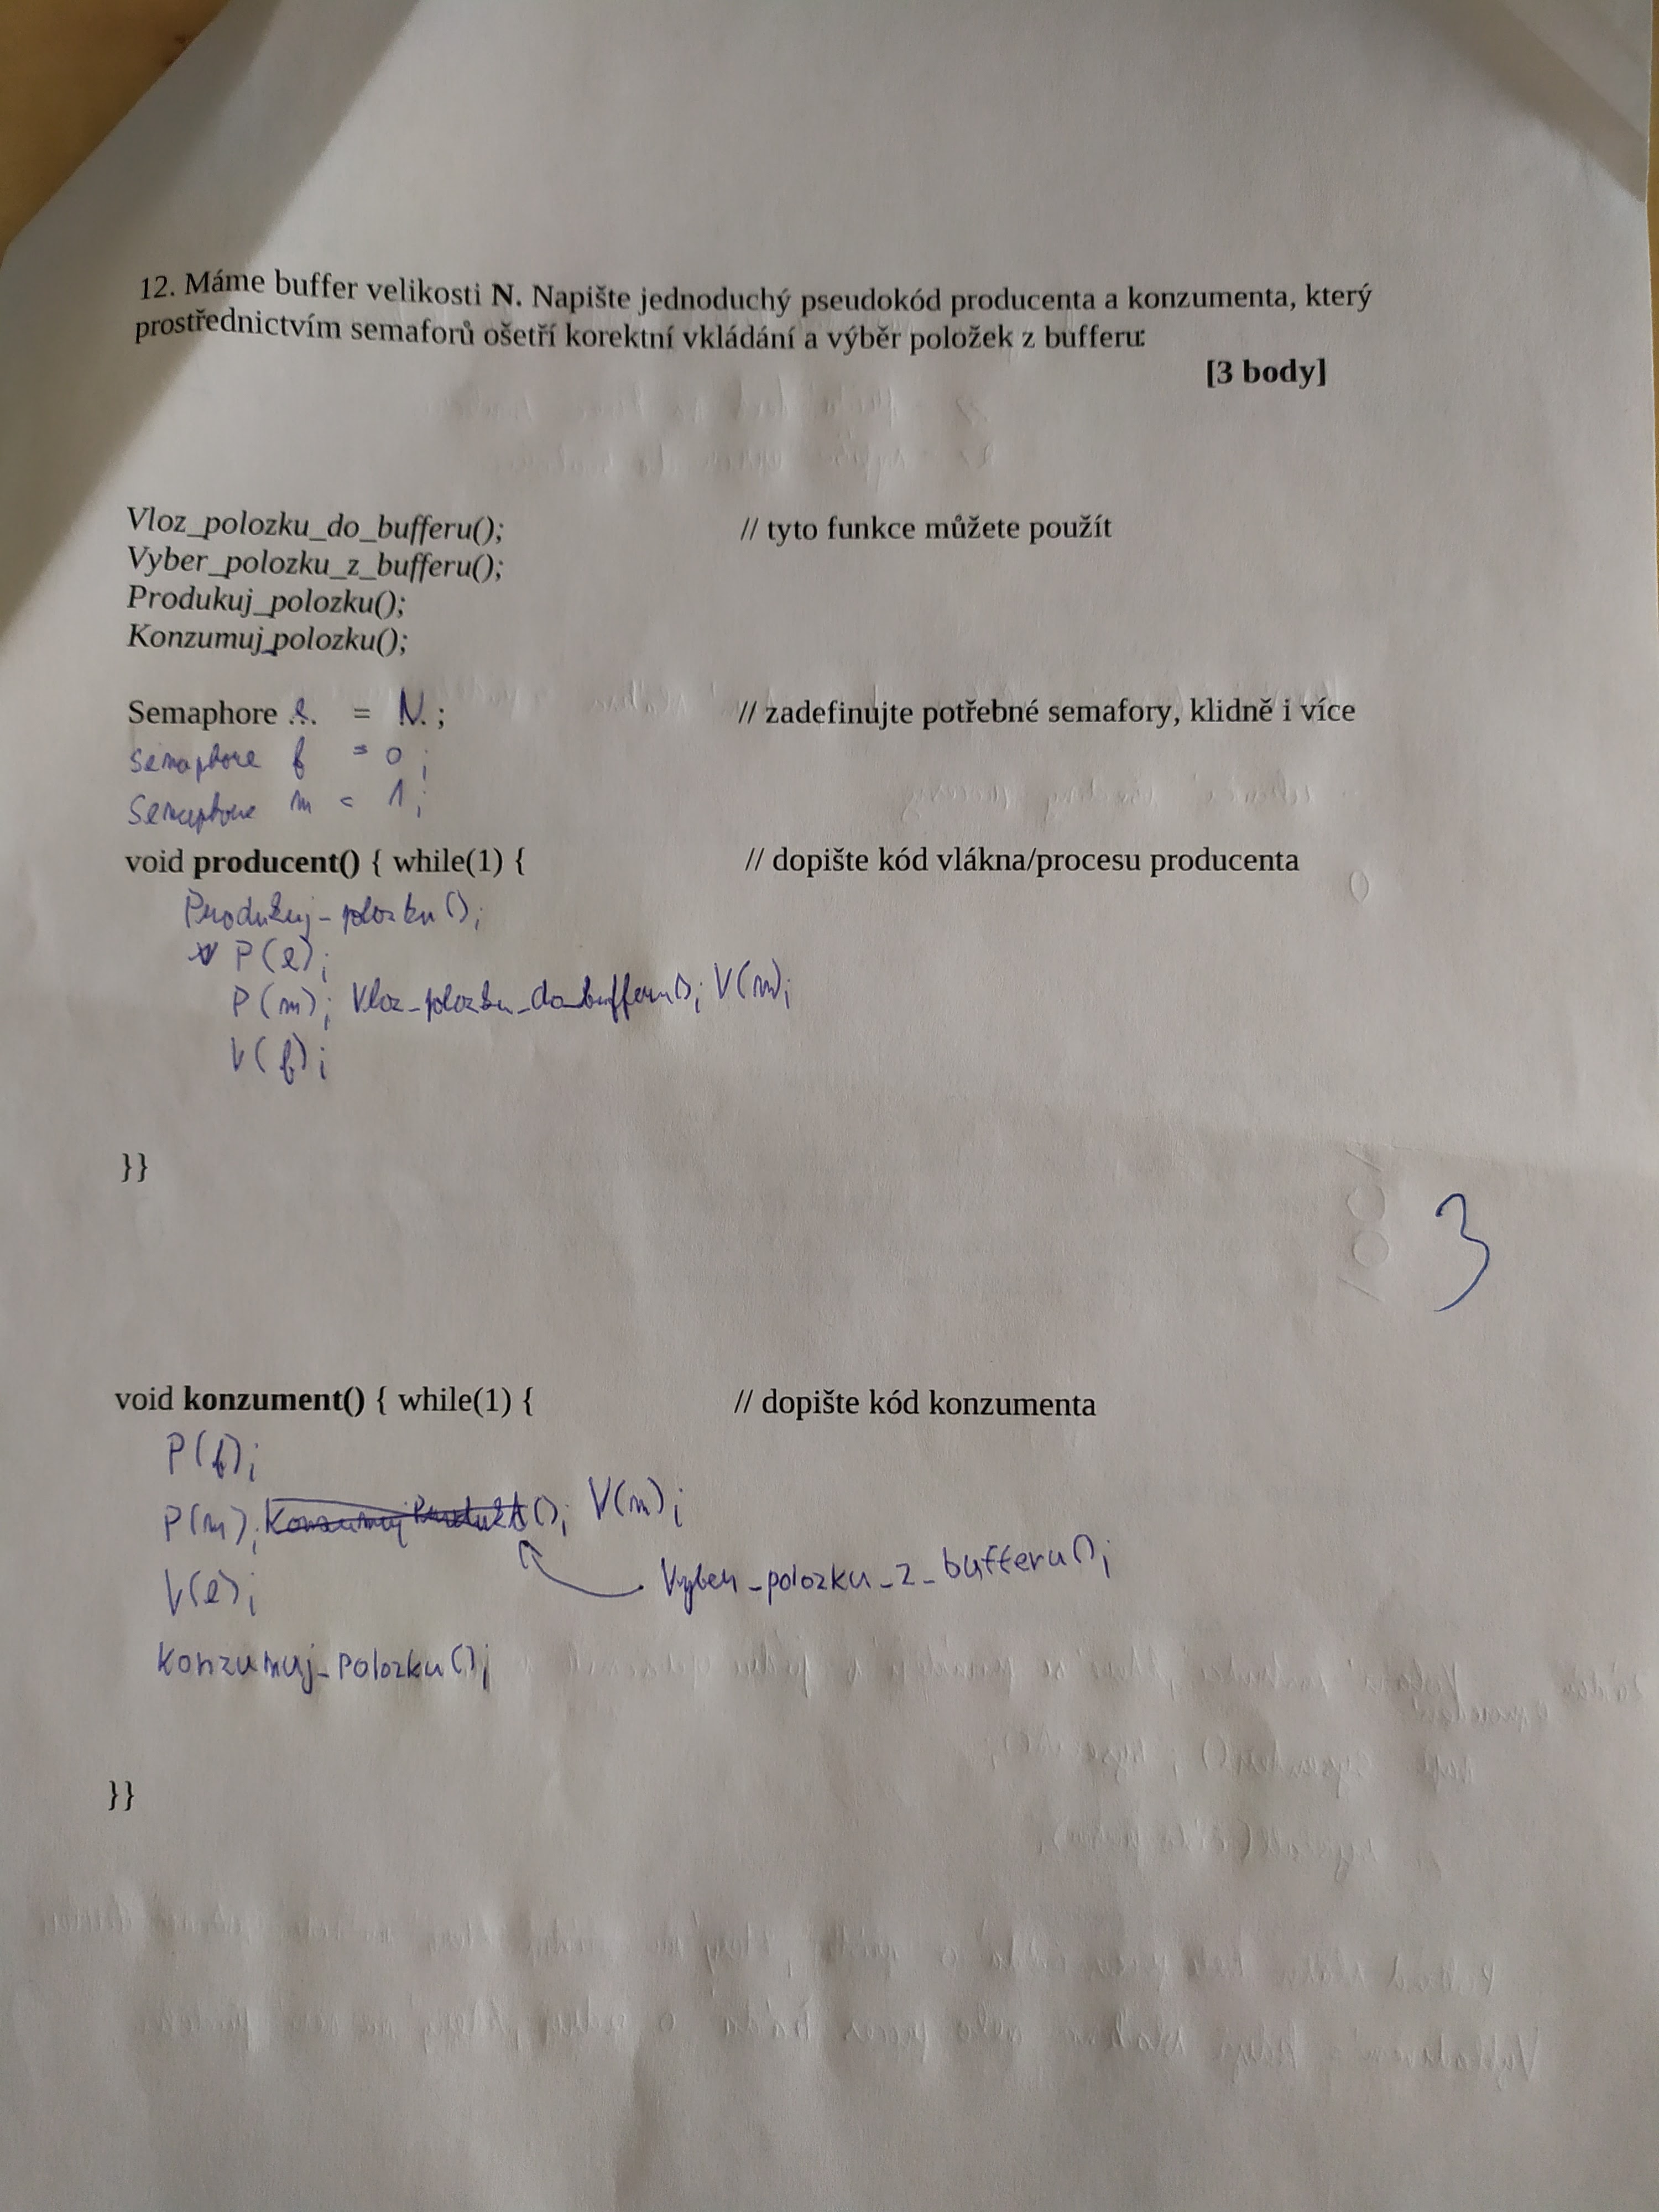 12. Máme buffer velikosti N. Napište jednoduchý pseudokód producenta a konzumenta, který
prostřednictvím semaforů ošetří korektní vkládání a výběr položek z bufferu:
[3 body]
Vloz_polozku_do_bufferu(); // tyto funkce můžete použít
Vyber_polozku_z_bufferu();
Produkuj_polozku();
Konzumuj_polozku();
Semaphore e = N; // zadefinujte potřebné semafory, klidně i více
Semaphore f = 0;
Semaphore m = 1;
void producent() { while(1) { // dopište kód vlákna/procesu producenta
Produkuj_polozku();
P(e);
P(m); Vloz_polozku_do_bufferu(); V(m);
V(f);
}}
3
void konzument() { while(1) { // dopište kód konzumenta
P(f);
P(m); Konzumuj Produkt(); V(m);
Vyber_polozku_z_bufferu();
V(e);
Konzumuj_polozku();
}}